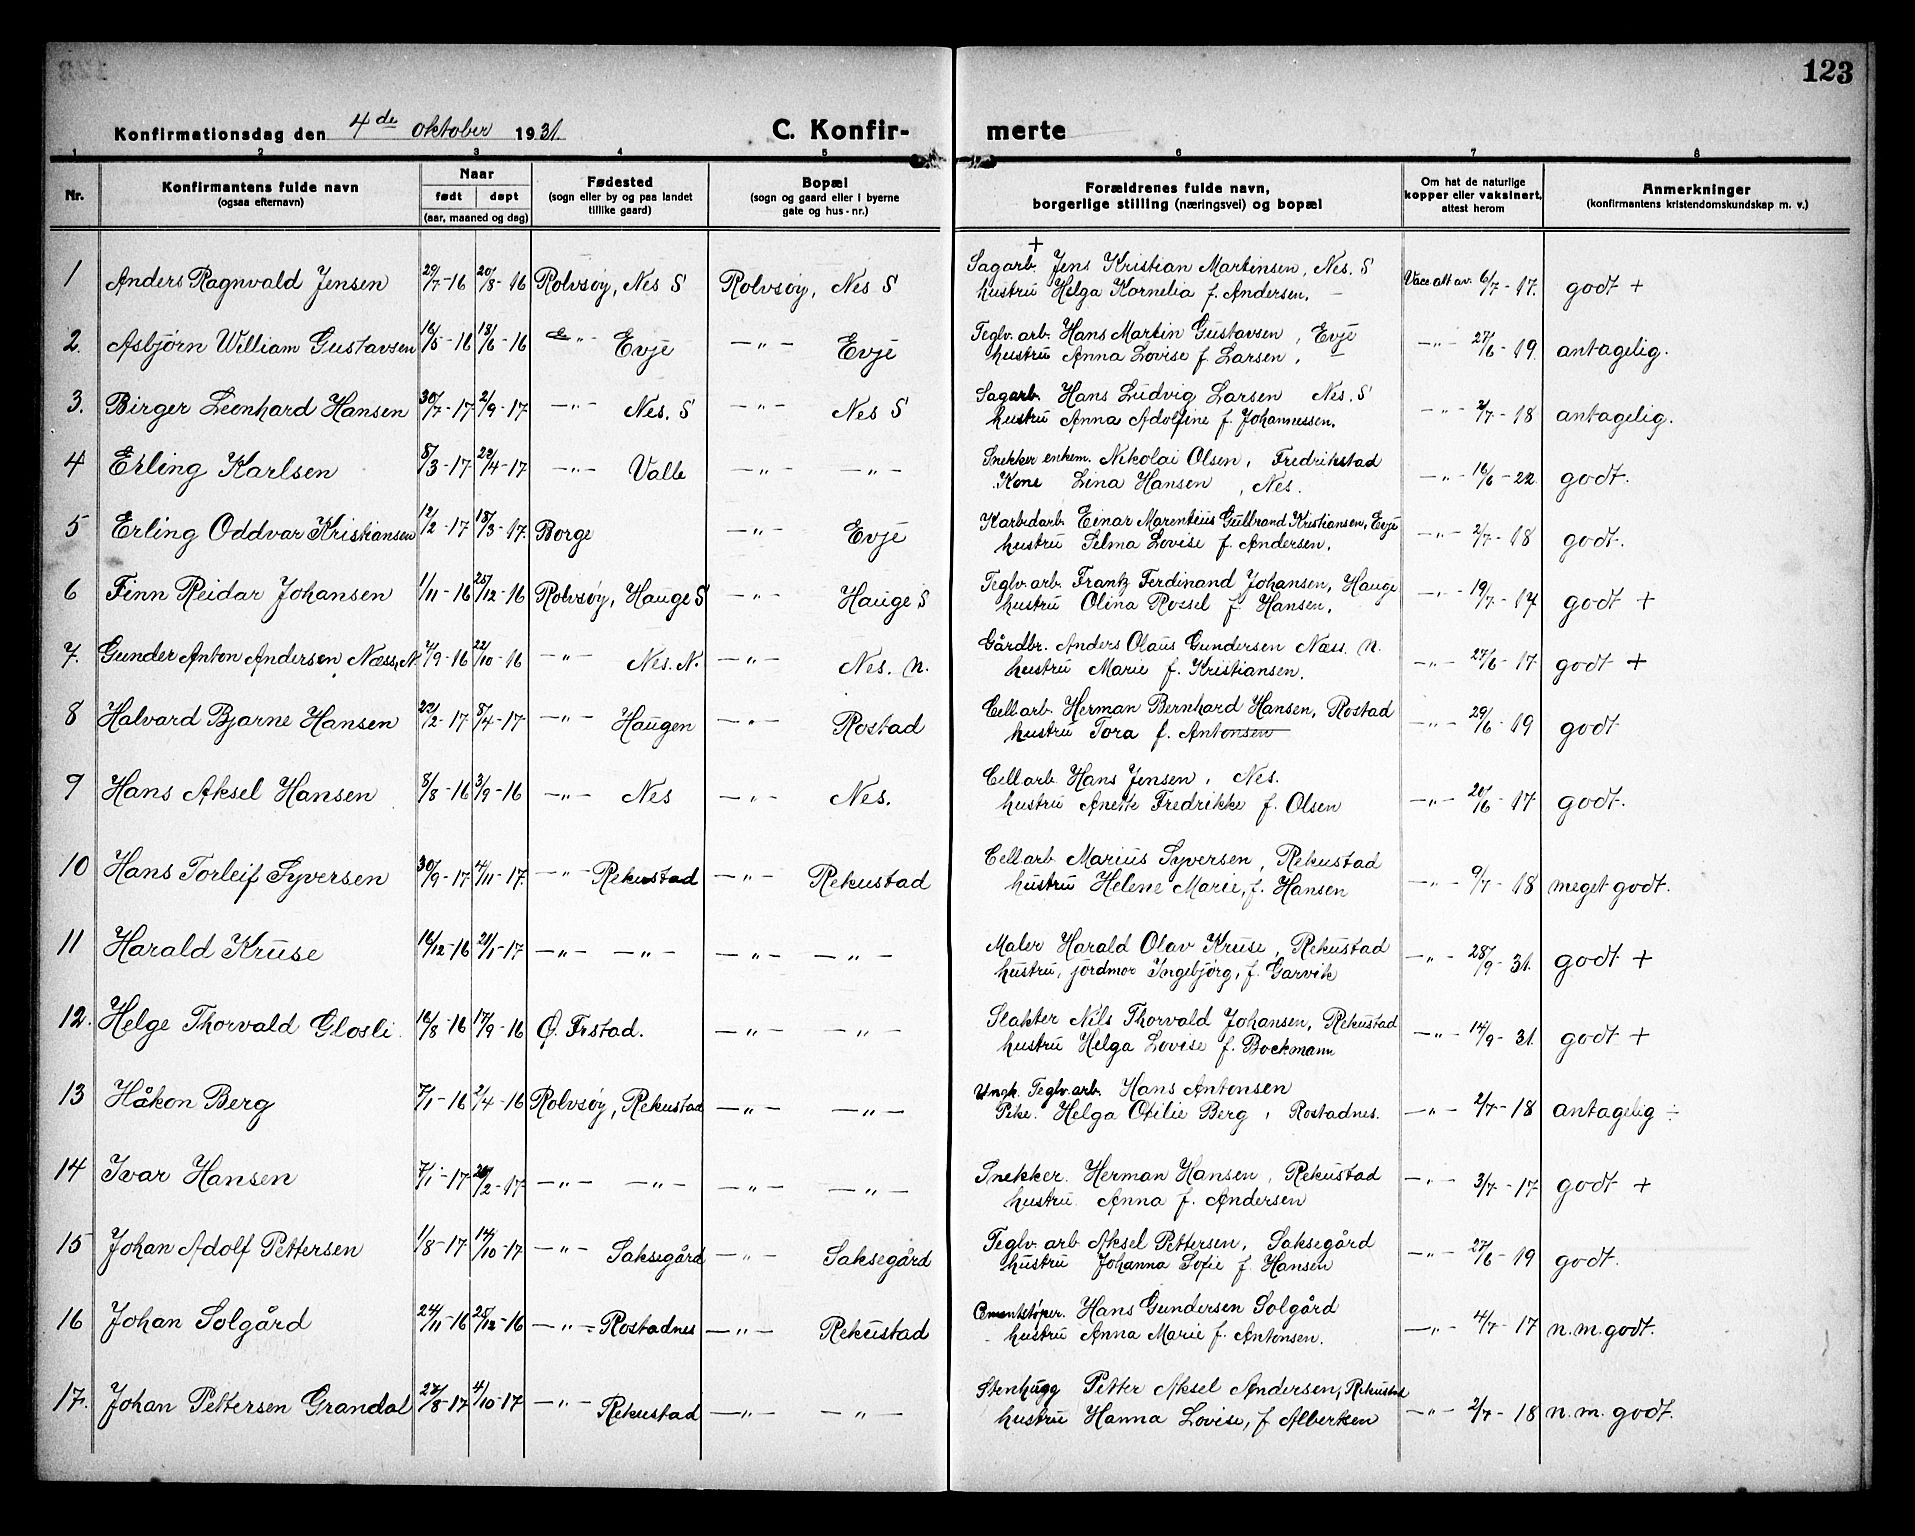 123
Konfirmationsdag den 4de oktober 1931.
C. Konfir- merte
1 2 3 4 5 6 7 8
Nr.
Konfirmantens fulde navn
(ogsaa efternavn)
Naar
født døpt
(aar, maaned og dag)
Fødested
(sogn eller by og paa landet
tillike gaard)
Bopæl
(sogn og gaard eller i byerne
gate og hus-nr.)
Forældrenes fulde navn,
borgerlige stilling (næringsvei) og bopæl
Om hat de naturlige
kopper eller vaksinert,
attest herom
Anmerkninger
(konfirmantens kristendomskundskap m. v.)
1 Anders Ragnvald Jensen 29/7-16 20/8-16 Rolvsøy, Nes S Rolvsøy, Nes S Sagarb. + Jens Kristian Martinsen, Nes. S Vacc att av. 6/7-17. godt +
hustru Helga Kornelia f. Andersen. —
2. Asbjørn William Gustavsen 16/5-16 18/6-16 —"— Evje —"— Evje Teglv. arb. Hans Martin Gustavsen, Evje —"— 27/6-19 antagelig.
hustru Anna Lovise f. Larsen, —
3. Birger Leonhard Hansen 30/7-17 2/9-17 —"— Nes. S —"— Nes S Sagarb. Hans Ludvig Larsen Nes. S —"— 2/7-18 antagelig.
hustru Anna Adolfine f. Johannessen.
4 Erling Karlsen 8/3-17 22/4-17 —"— Valle —"— —"— Snekker enkem. Nikolai Olsen, Fredrikstad —"— 16/6-22 godt.
Kone Lina Hansen, Nes.
5 Erling Oddvar Kristiansen 12/2-17 18/3-17. Borge —"— Evje Karbidarb. Einar Marentius Gulbrand Kristiansen, Evje —"— 2/7-18 godt.
hustru Selma Lovise f. Andersen.
6 Finn Reidar Johansen 1/11-16 25/12-16 Rolvsøy, Hauge S —"— Hauge S Teglv. arb. Frantz Ferdinand Johansen, Hauge —"— 19/7-17 godt +
hustru Olina Rossel f. Hansen.
7. Gunder Anton Andersen Næss, N. 7/9-16 22/10-16 —"— Nes. N. —"— Nes. N. Gårdbr. Anders Olaus Gundersen Næss. N. —"— 27/6-17. godt +
hustru Marie f. Kristiansen.
8 Halvard Bjarne Hansen 22/2-17 8/4-17 —"— Haugen —"— Rostad Cell. arb. Herman Bernhard Hansen, Rostad —"— 29/6-19 godt
hustru Tora f. Antonsen
9 Hans Aksel Hansen 8/8-16 3/9-16 —"— Nes —"— Nes. Cell. arb. Hans Jensen, Nes. —"— 20/6-17 godt.
hustru Anette Fredrikke f. Olsen
10 Hans Torleif Syversen 30/9-17 4/11-17. —"— Rekustad —"— Rekustad Cell. arb Marius Syversen, Rekustad —"— 9/7-18 meget godt.
hustru Helene Marie, f. Hansen
11 Harald Kruse 16/12-16 21/1-17 —"— —"— —"— —"— Maler Harald Olav Kruse, Rekustad —"— 28/9-31. godt +
hustru, jordmor Ingebjørg, f. Garvik
12. Helge Thorvald Glosli 16/8-16 17/9-16 Ø. Frstad. —"— —"— Slakter Nils Thorvald Johansen, Rekustad —"— 14/9-31. godt +
hustru Helga Lovise f. Bockmann
13 Håkon Berg 7/1-16 2/4-16 Rolvsøy, Rekustad —"— —"— Ungk. Teglv. arb. Hans Antonsen —"— 2/7-18 antagelig ÷
Pike. Helga Otilie Berg, Rostadnes.
14 Ivar Hansen 7/1-17 /2-17. —"— —"— —"— —"— Snekker. Herman Hansen, Rekustad —"— 3/7-17 godt +
hustru. Anna f. Andersen
15 Johan Adolf Pettersen 1/8-17 14/10-17 —"— Saksegård —"— Saksegård Teglv. arb Aksel Pettersen, Saksegård —"— 27/6-19 godt.
hustru Johanna Sofie f. Hansen
16 Johan Solgård 24/11-16 25/12-16 —"— Rostadnes —"— Rekustad Cementstøper. Hans Gundersen Solgård —"— 4/7-17 n. m. godt.
hustru Anna Marie f. Antonsen.
17. Johan Pettersen Grandal 27/8-17 4/10-17 —"— Rekustad —"— —"— Stenhugg Petter Aksel Andersen, Rekustad —"— 2/7-18 n. m. godt.
hustru Hanna Lovise, f Albertsen